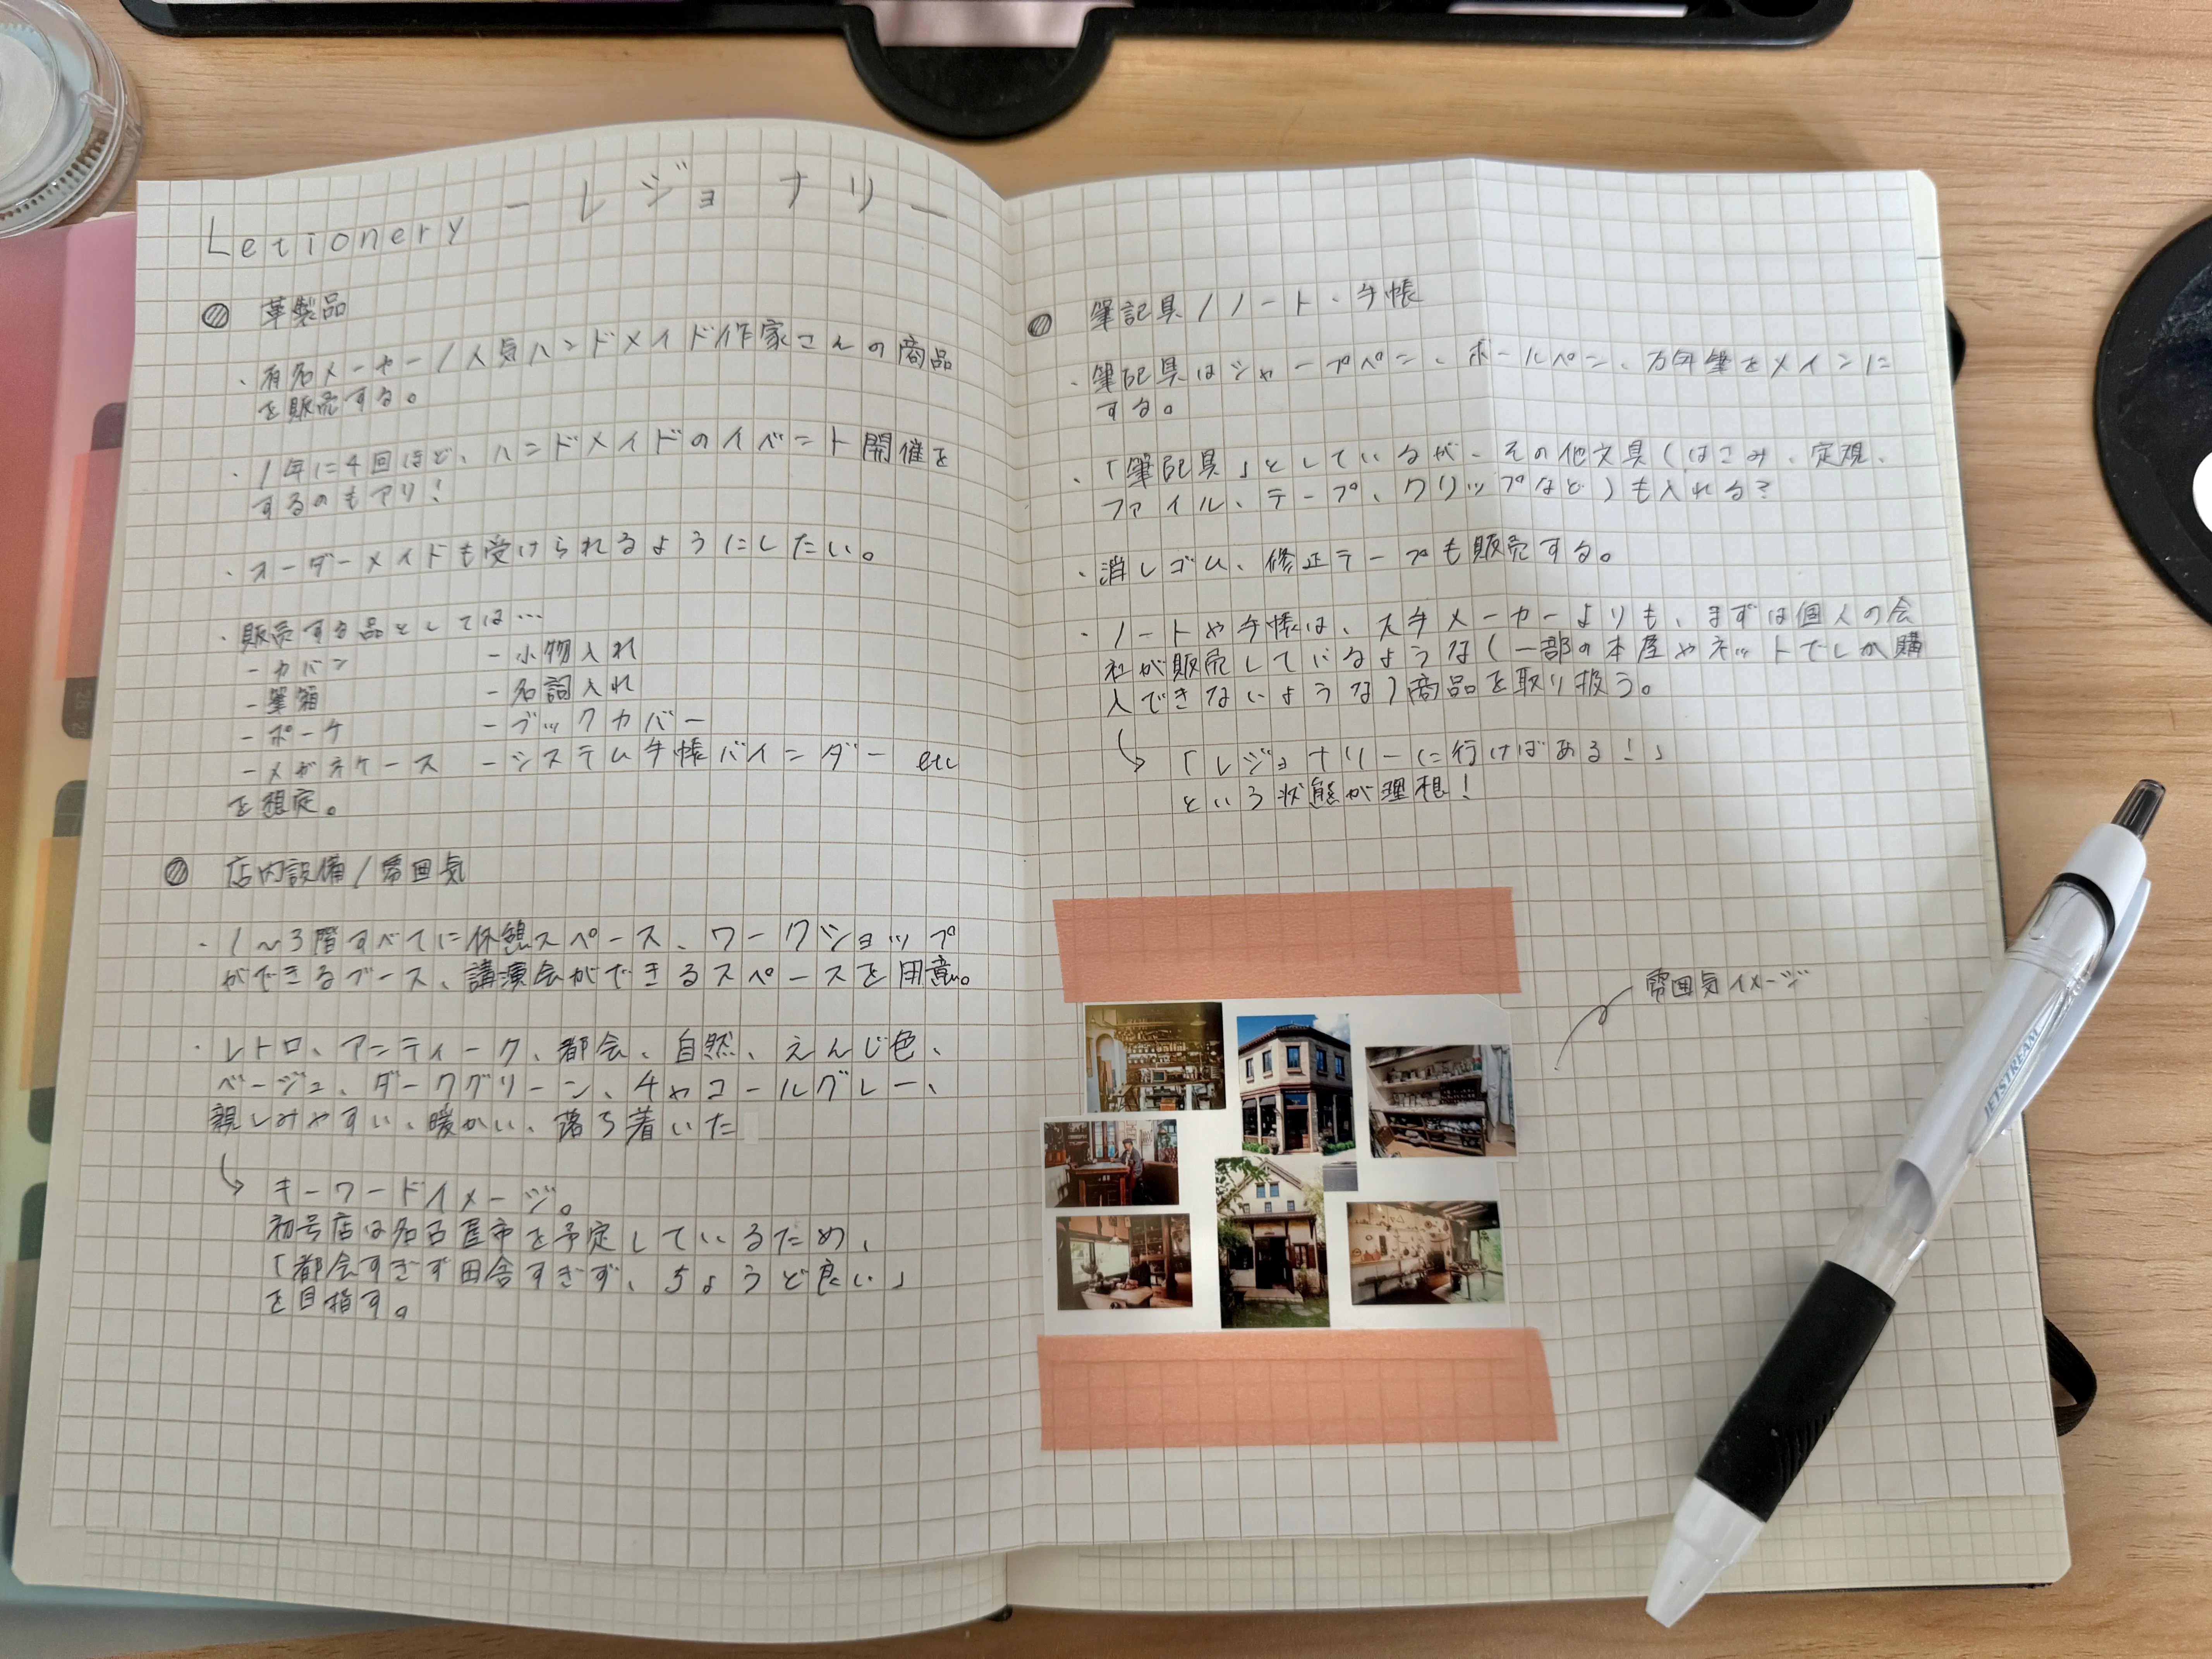 Letionery ー レジョナリー
革製品
・有名メーカー/人気ハンドメイド作家さんの商品
を販売する。
・1年に4回ほど、ハンドメイドのイベント開催を
するのもアリ!
・オーダーメイドも受けられるようにしたい。
・販売する品としては…
－カバン －小物入れ
－筆箱 －名詞入れ
－ポーチ －ブックカバー
－メガネケース －システム手帳バインダー etc
を想定。
店内設備/雰囲気
・1～3階すべてに休憩スペース、ワークショップ
ができるブース、講演会ができるスペースを用意。
・レトロ、アンティーク、都会、自然、えんじ色、
ベージュ、ダークグリーン、チャコールグレー、
親しみやすい、暖かい、落ち着いた
キーワードイメージ。
初号店は名古屋市を予定しているため、
「都会すぎず田舎すぎず、ちょうど良い」
を目指す。
筆記具/ノート・手帳
・筆記具はシャープペン、ボールペン、万年筆をメインに
する。
・「筆記具」としているが、その他文具(はさみ、定規、
ファイル、テープ、クリップなど)も入れる?
・消しゴム、修正テープも販売する。
・ノートや手帳は、大手メーカーよりも、まずは個人の会
社が販売しているような(一部の本屋やネットでしか購
入できないような)商品を取り扱う。
「レジョナリーに行けばある!」
という状態が理想!
雰囲気イメージ
JETSTREAM